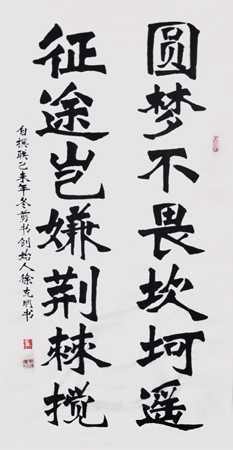 圆梦不畏坎坷遥
征途岂嫌荆棘搅
自撰联己未年冬剪书创始人徐克明书